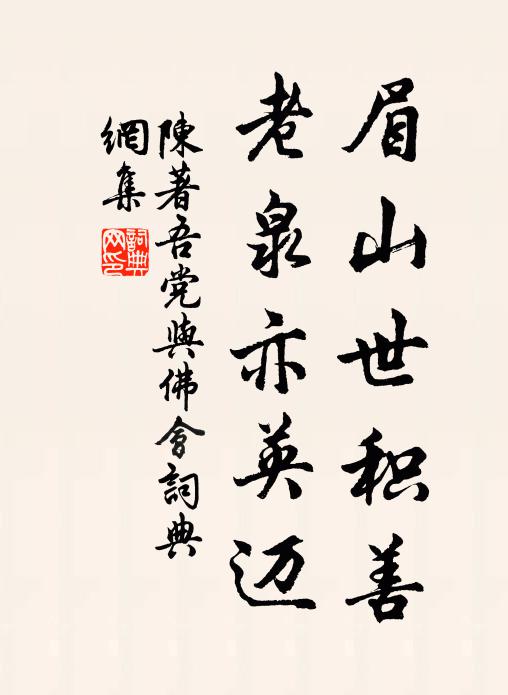 眉山世积善
老泉亦英迈
陳著吾党與佛會詞典
網集
詞典
网印